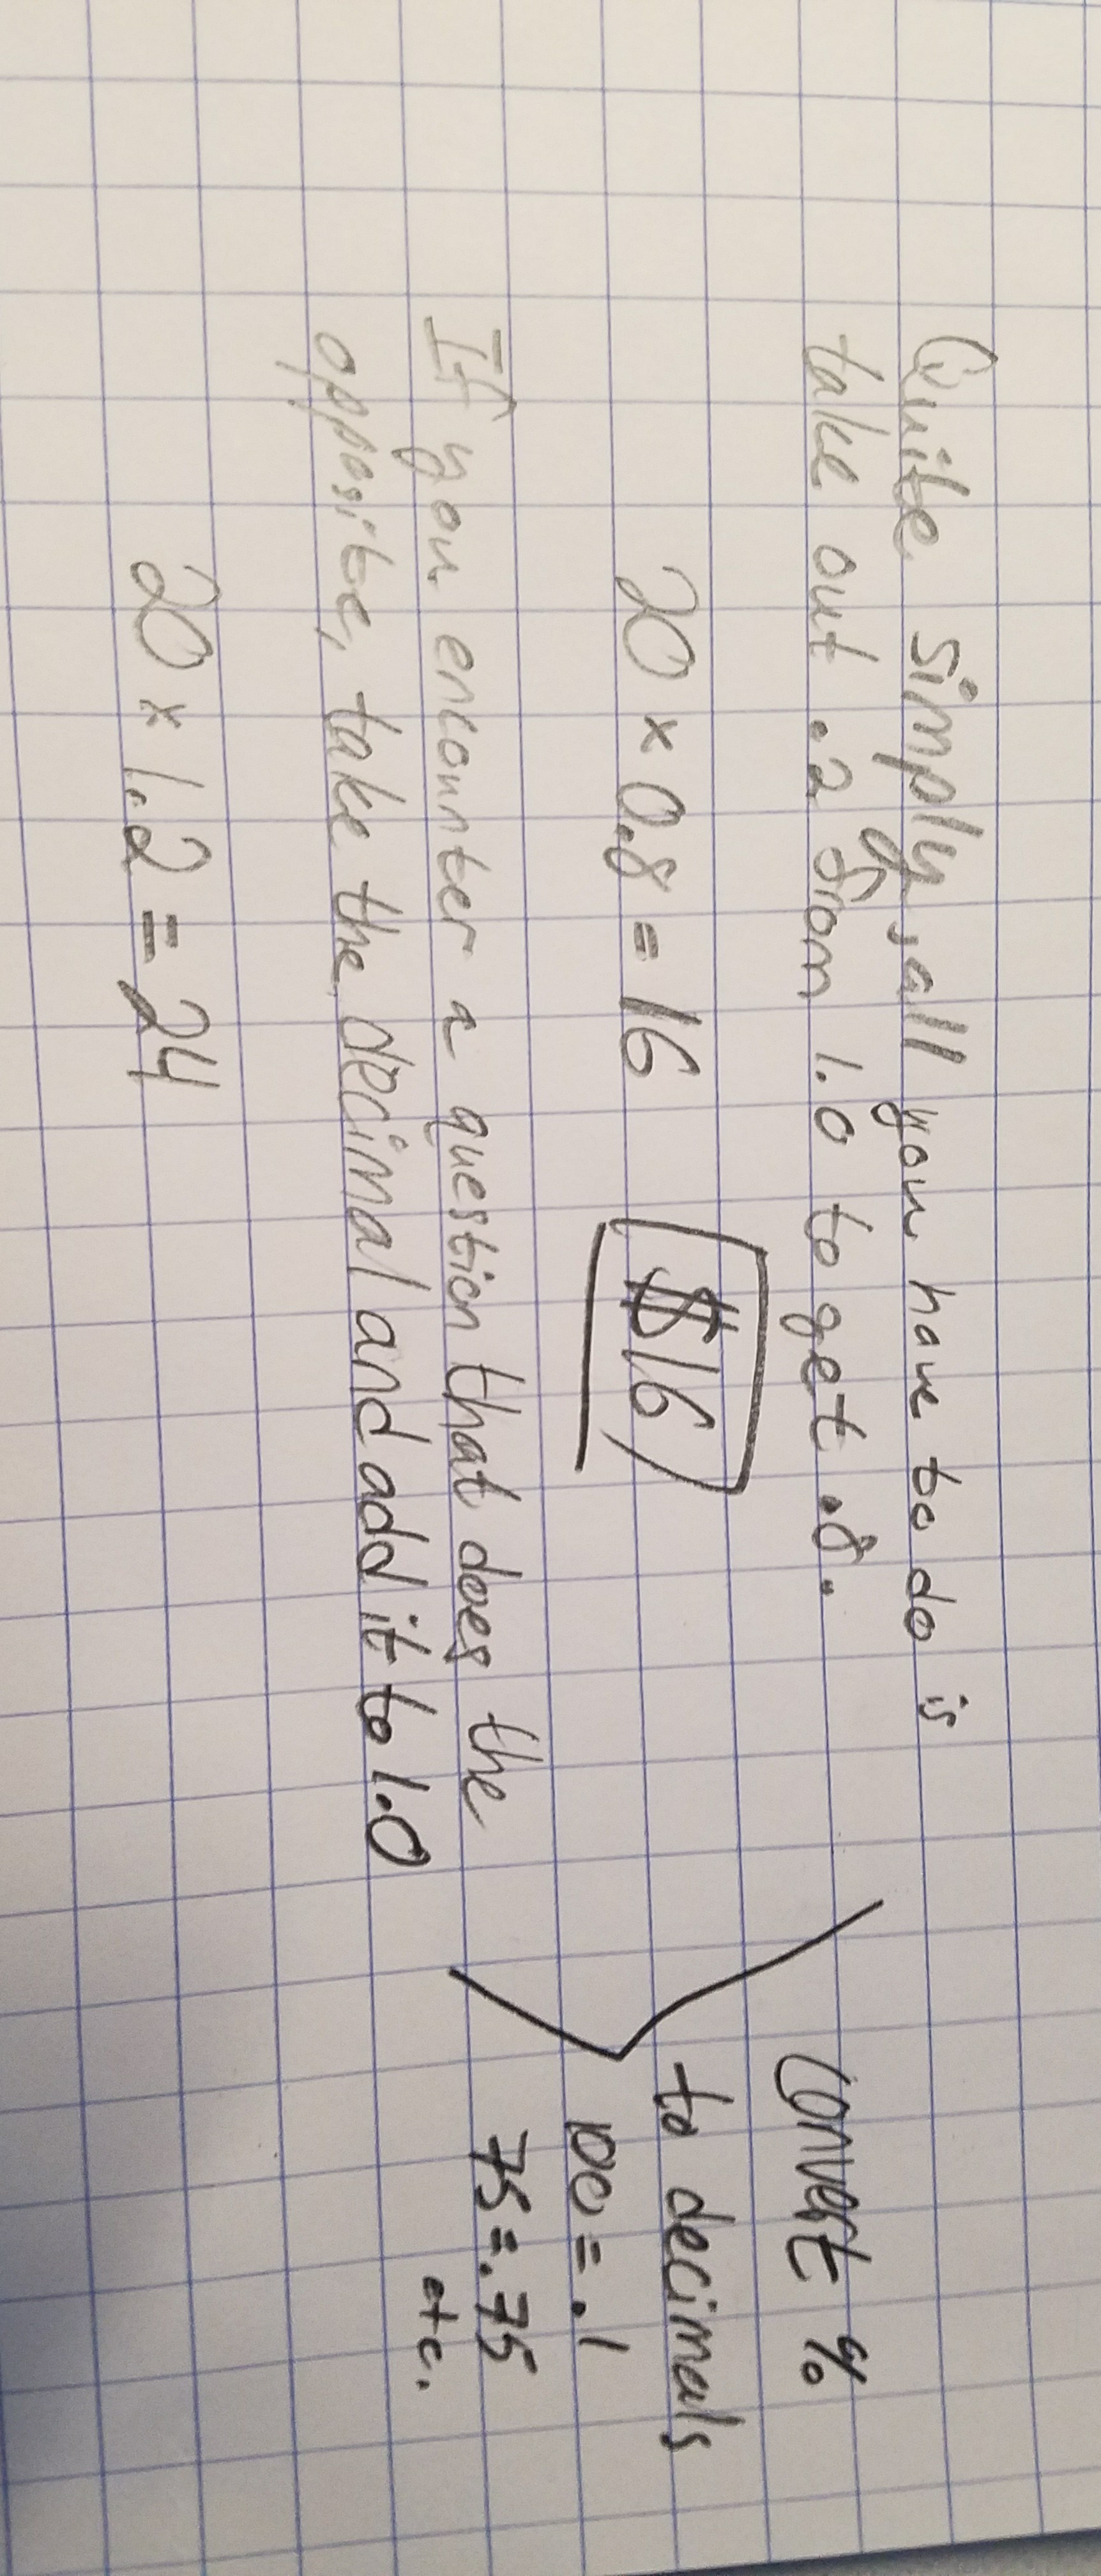 Quite simply, all you have to do is
take out .2 from 1.0 to get .8.
20 × 0.8 = 16 $16
If you encounter a question that does the
opposite, take the decimal and add it to 1.0
20 × 1.2 = 24
Convert %
to decimals
100 = .1
75 = .75
etc.